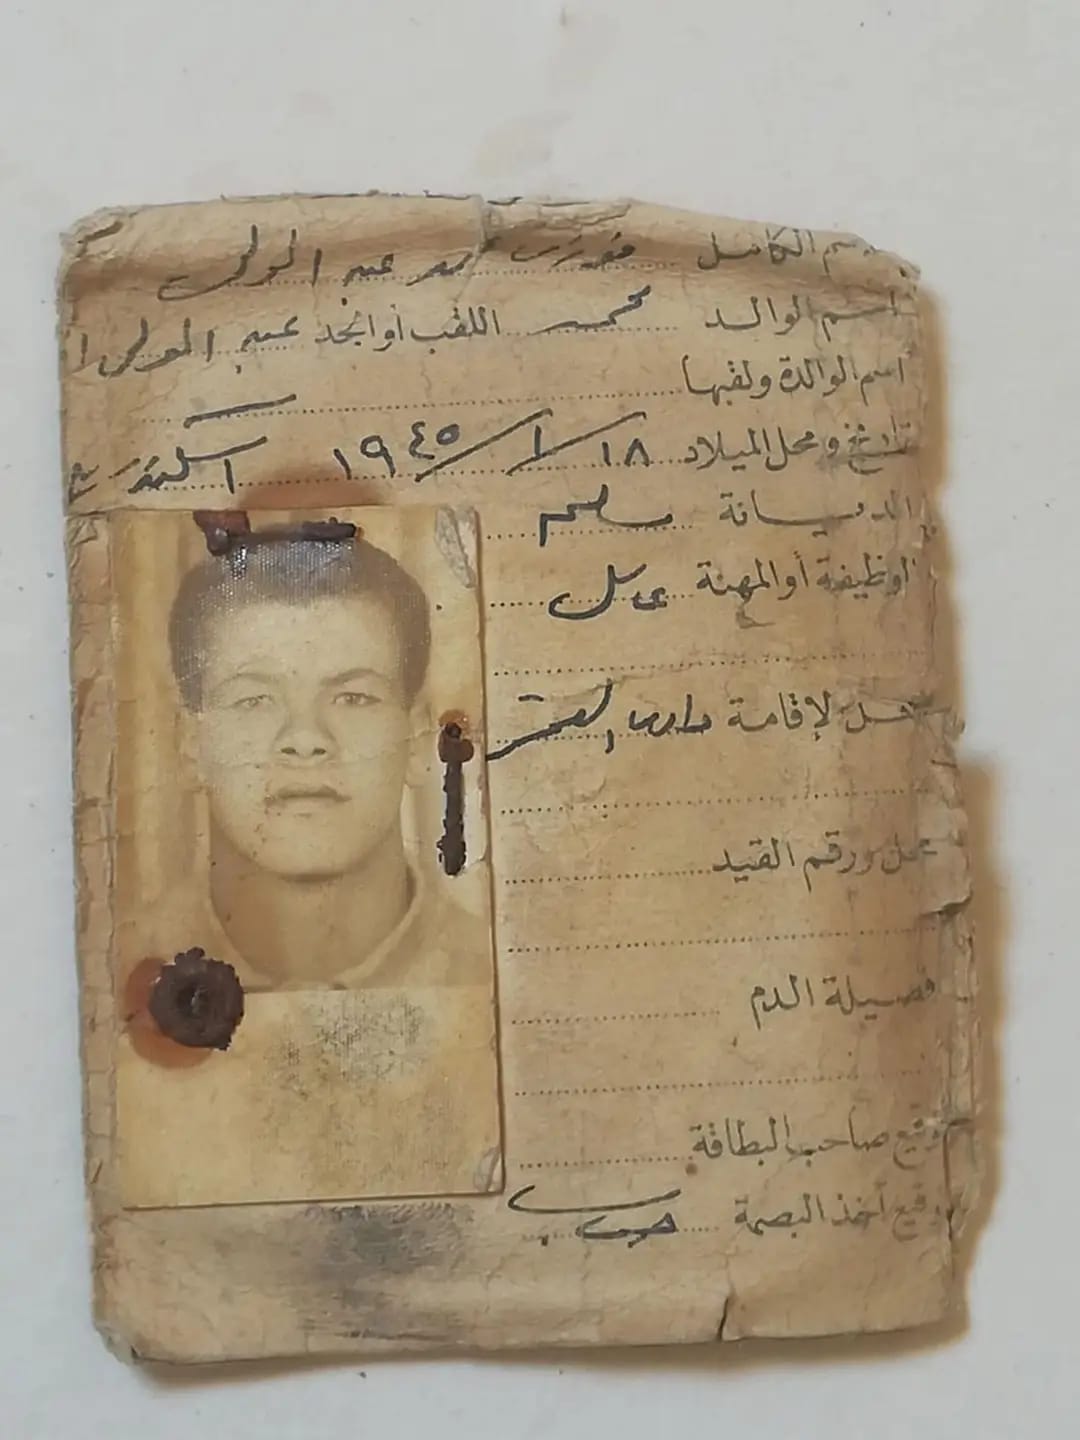 الاسم الكامل فوزى محمد عبد المولى
اسم الوالد محمد اللقب أو الجد عبد المولى
اسم الوالدة ولقبها
تاريخ ومحل الميلاد ١٨ / ١ / ١٩٤٥ اسكندرية
الديانة مسلم
الوظيفة أو المهنة عامل
محل لإقامة
محل ورقم القيد
فصيلة الدم
توقيع صاحب البطاقة
توقيع آخذ البصمة